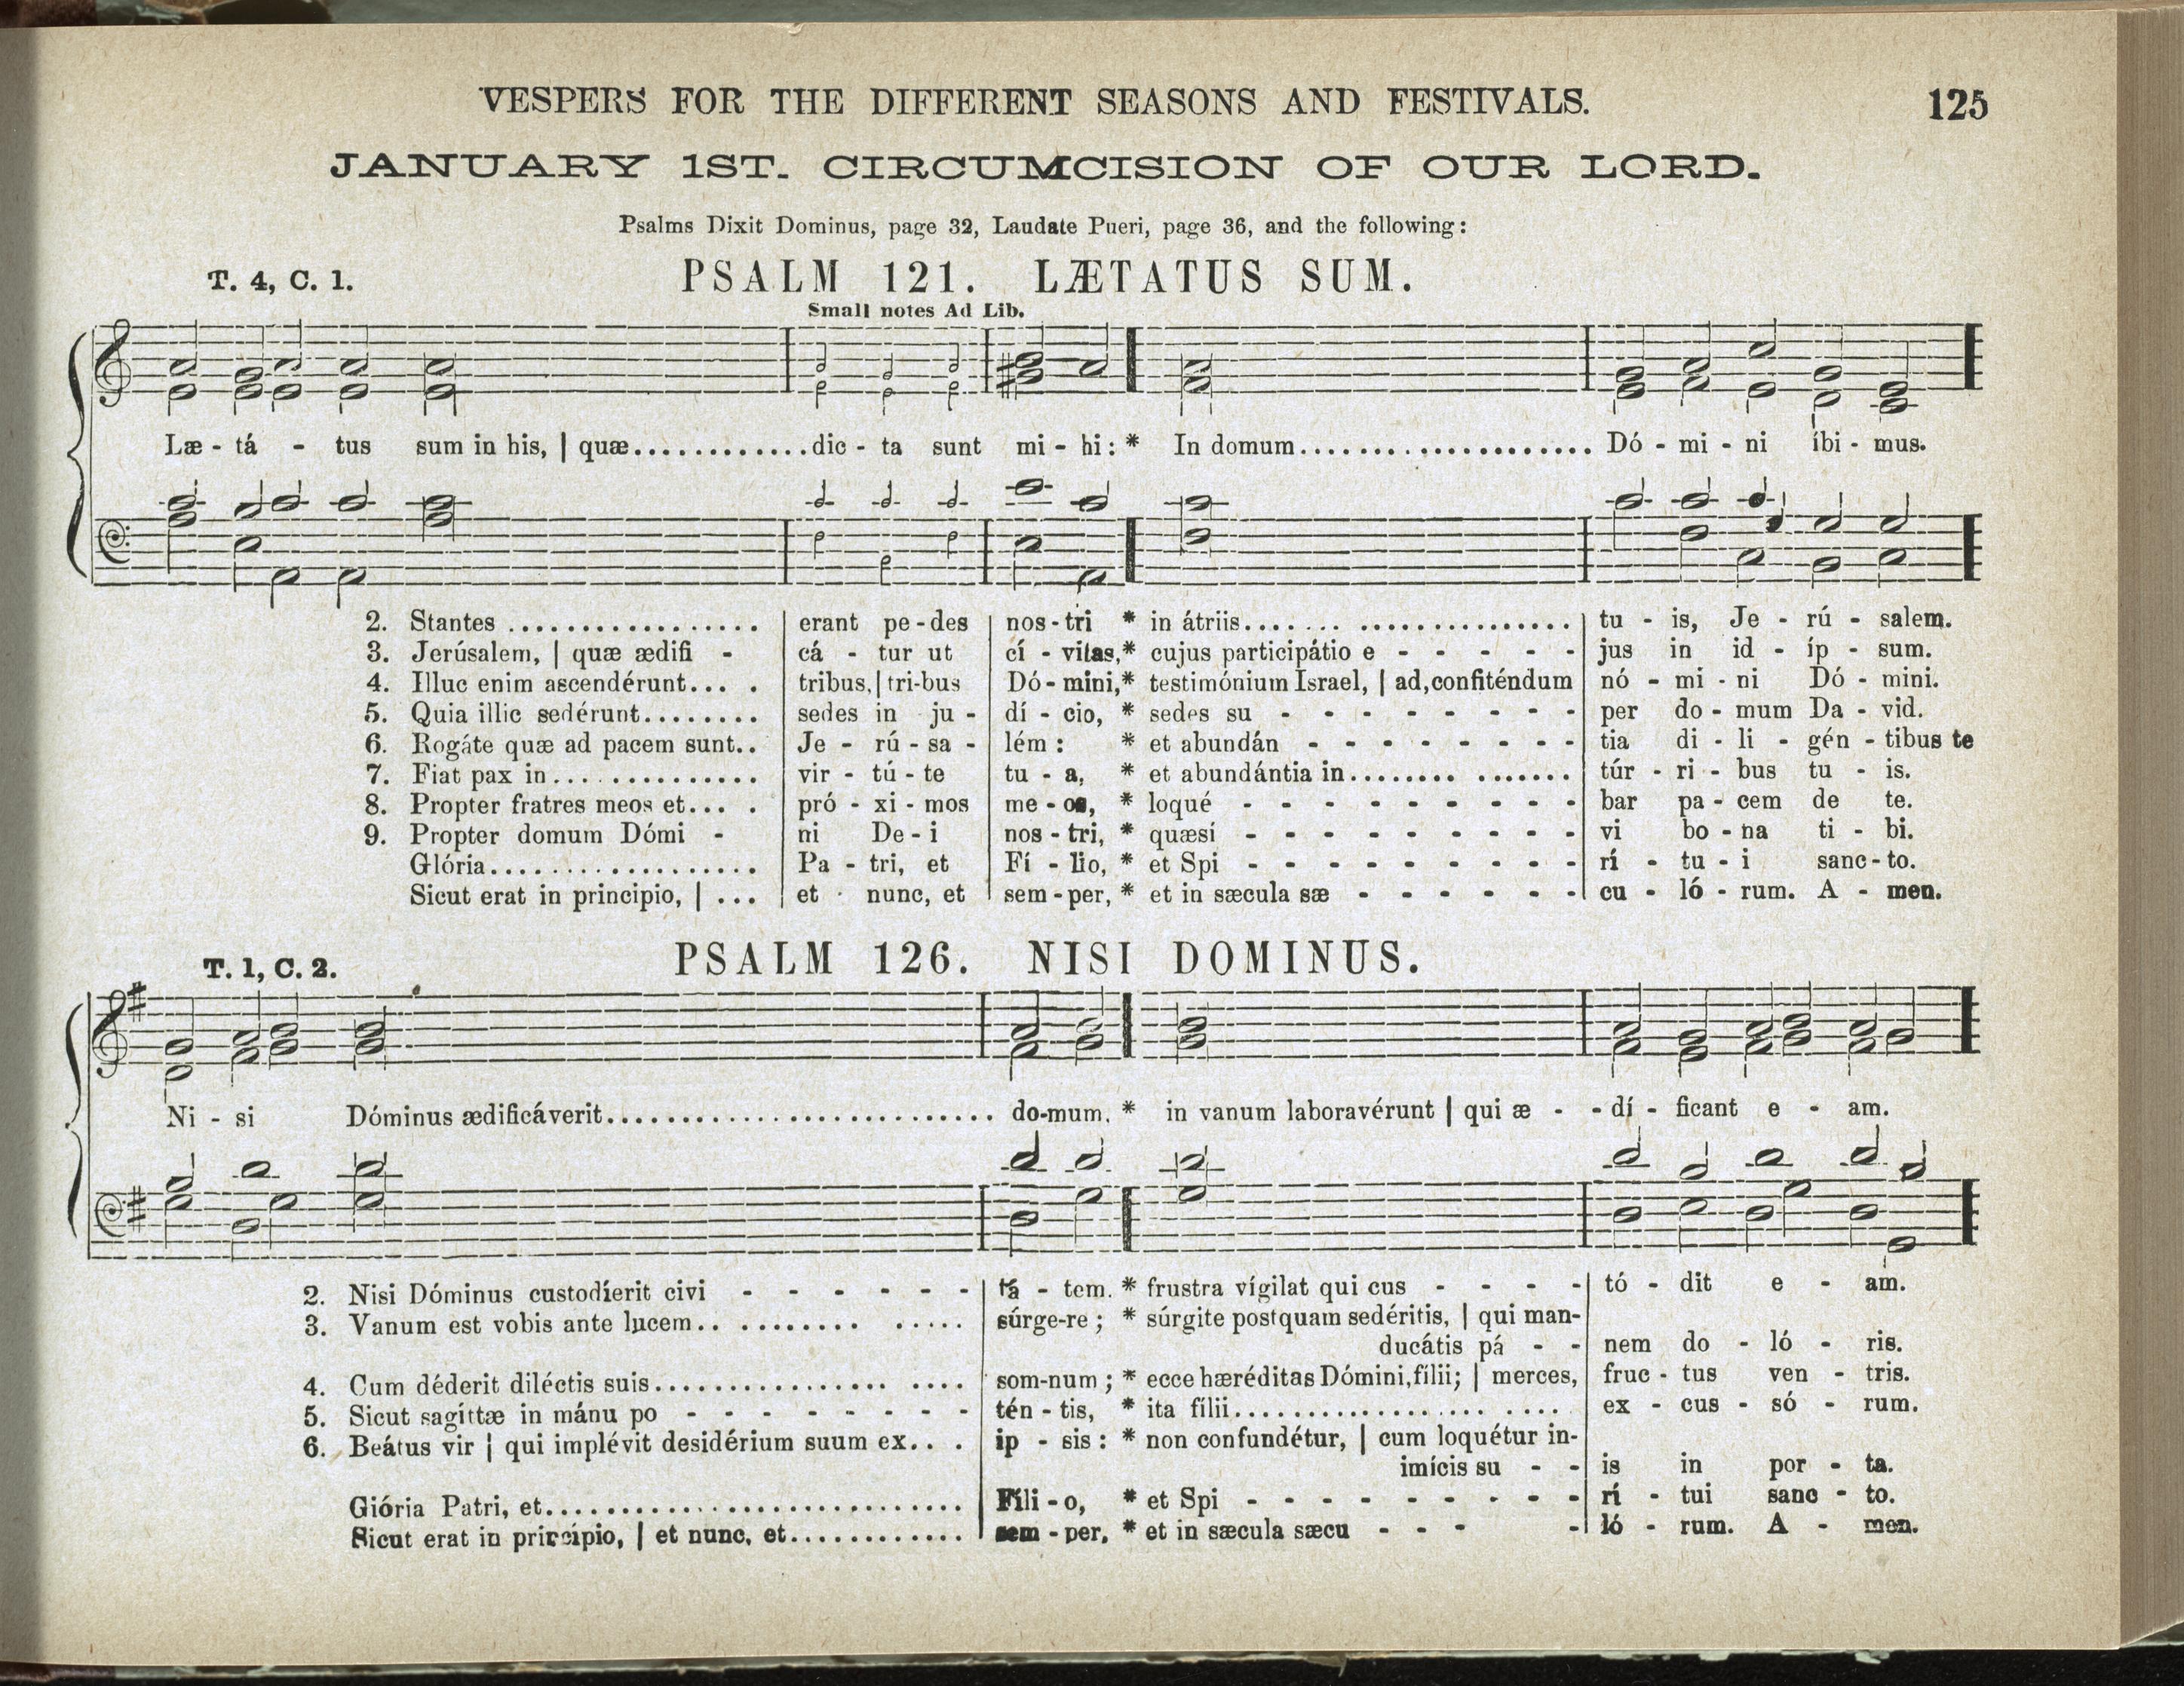 VESPERS FOR THE DIFFERENT SEASONS AND FESTIVALS. 125
JANUARY 1ST. CIRCUMCISION OF OUR LORD.
Psalms Dixit Dominus, page 32, Laudate Pueri, page 36, and the following:
T. 4, C. 1. PSALM 121. LÆTATUS SUM.
Small notes Ad Lib.
Læ - tá - tus sum in his, | quæ.............dic - ta sunt mi - hi: * In domum..................... Dó - mi - ni íbi - mus.
2. Stantes ................. | erant pe - des | nos - tri * in átriis....... ............... | tu - is, Je - rú - salem.
3. Jerúsalem, | quæ ædifi - | cá - tur ut | cí - vitas,* cujus participátio e - - - - - | jus in id - íp - sum.
4. Illuc enim ascendérunt... . | tribus, | tri-bus | Dó - mini,* testimónium Israel, | ad,confiténdum | nó - mi - ni Dó - mini.
5. Quia illic sedérunt........ | sedes in ju - | dí - cio, * sedes su - - - - - - - - | per do - mum Da - vid.
6. Rogáte quæ ad pacem sunt.. | Je - rú - sa - | lém : * et abundán - - - - - - - - | tia di - li - gén - tibus te
7. Fiat pax in............... | vir - tú - te | tu - a, * et abundántia in........ ....... | túr - ri - bus tu - is.
8. Propter fratres meos et... . | pró - xi - mos | me - os, * loqué - - - - - - - - - | bar pa - cem de te.
9. Propter domum Dómi - | ni De - i | nos - tri, * quæsí - - - - - - - - - | vi bo - na ti - bi.
Glória................... | Pa - tri, et | Fí - lio, * et Spi - - - - - - - - - | rí - tu - i sanc - to.
Sicut erat in principio, | ... | et - nunc, et | sem - per, * et in sæcula sæ - - - - - - | cu - ló - rum. A - men.
T. 1, C. 2. PSALM 126. NISI DOMINUS.
Ni - si Dóminus ædificáverit............................ do-mum. * in vanum laboravérunt | qui æ - - dí - ficant e - am.
2. Nisi Dóminus custodíerit civi - - - - - - - | tá - tem. * frustra vígilat qui cus - - - - | tó - dit e - am.
3. Vanum est vobis ante lucem.. ........ ..... | súrge-re ; * súrgite postquam sedéritis, | qui man-
ducátis pá - - | nem do - ló - ris.
4. Cum déderit diléctis suis................ .... | som-num ; * ecce hæréditas Dómini,fílii; | merces, | fruc - tus ven - tris.
5. Sicut sagíttæ in mánu po - - - - - - - - | tén - tis, * ita fílii.................... .... | ex - cus - só - rum.
6. Beátus vir | qui implévit desidérium suum ex.. . | ip - sis : * non confundétur, | cum loquétur in-
imícis su - - | is in por - ta.
Giória Patri, et.............................. | Fíli - o, * et Spi - - - - - - - - - | rí - tui sanc - to.
Sicut erat in principio, | et nunc, et............ | sem - per, * et in sæcula sæcu - - - - | ló - rum. A - men.